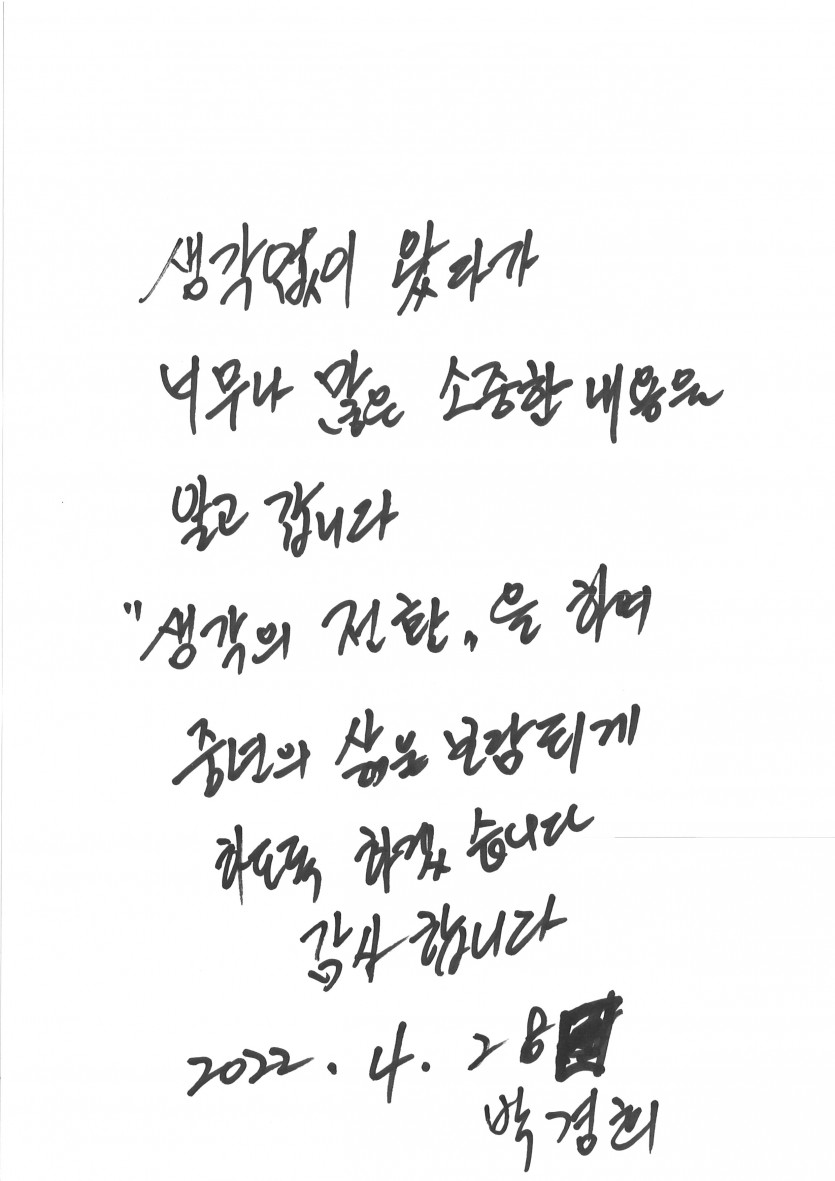 생각없이 왔다가
너무나 많은 소중한 내용을
알고 갑니다
"생각의 전환"을 하여
중년의 삶을 보람되게
하도록 하겠습니다
감사합니다
2022. 4. 28
박경희